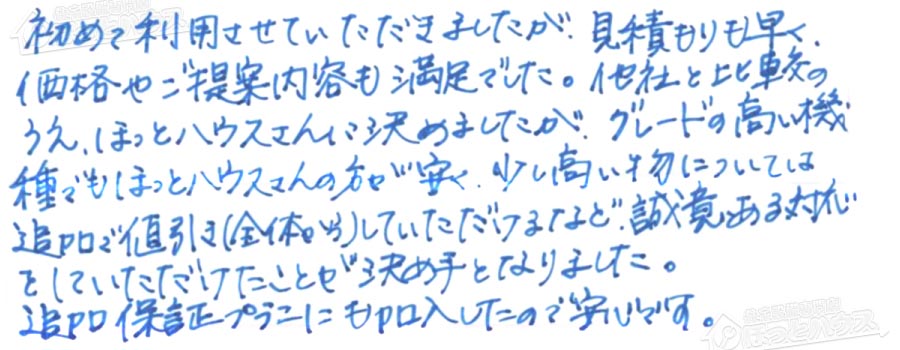 初めて利用させていただきましたが、見積もりも早く、
価格やご提案内容も満足でした。他社と比較の
うえ、ほっとハウスさんに決めましたが、グレードの高い機
種でもほっとハウスさんの方が安く、少し高い物については
追加で値引き(全体から)していただけるなど、誠意ある対応
をしていただけたことが決め手となりました。
追加保証プランにも加入したので安心です。
ほっとハウス